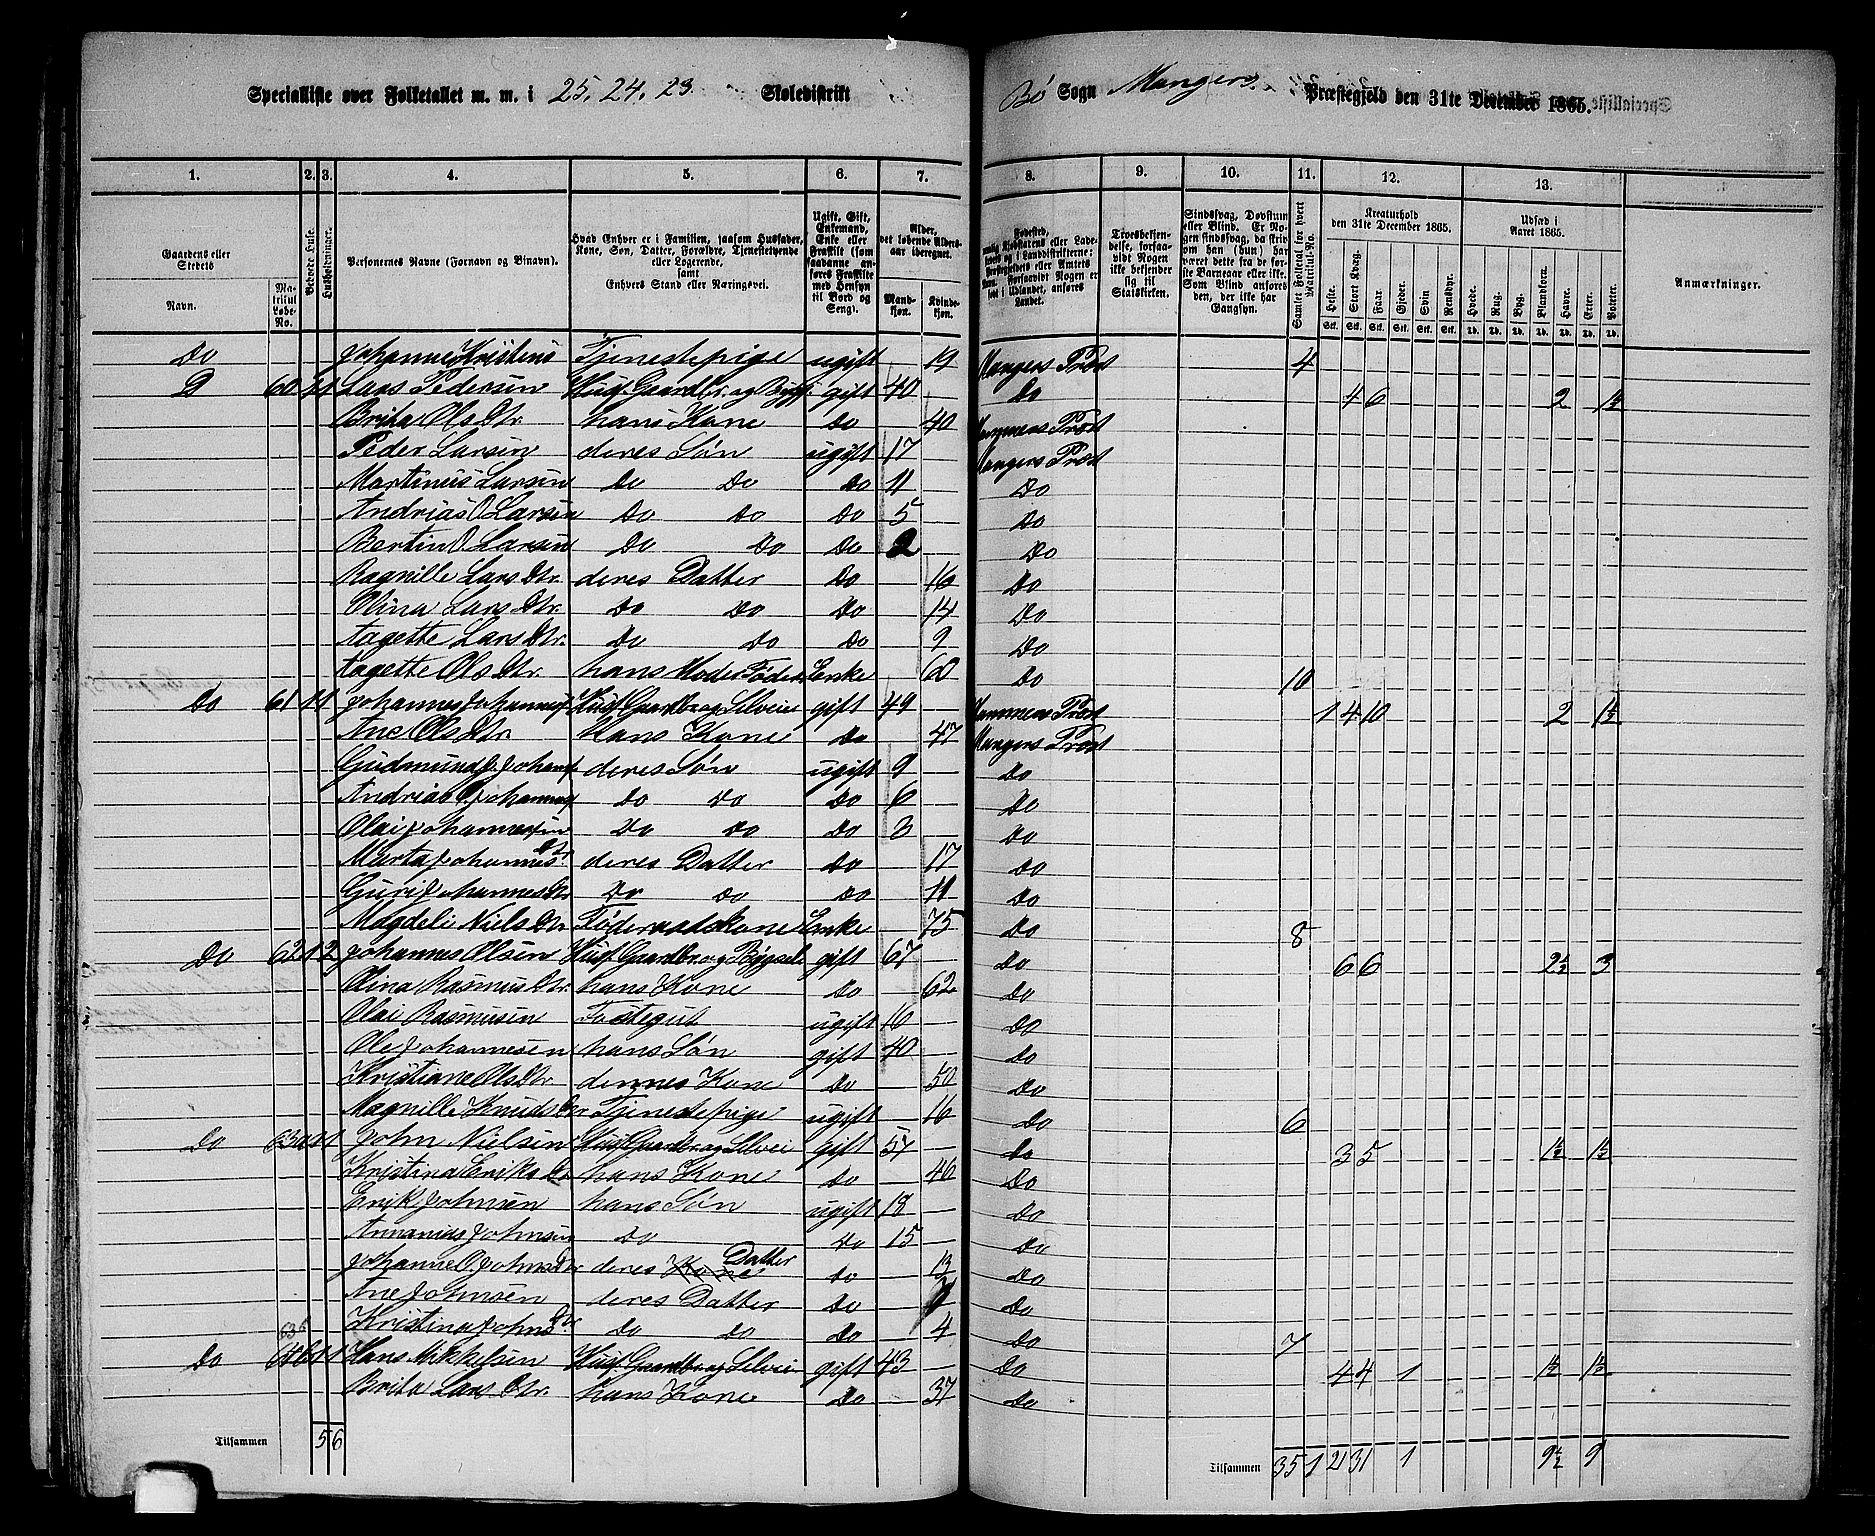 Specialliste over Folketallet m. m. i 25, 24, 23 Skoledistrikt Bø Sogn Mangers Præstegjeld den 31te December 1865.
1. 2. 3. 4. 5. 6. 7. 8. 9. 10. 11. 12. 13.
Gaardens eller Stedets
Navn.
Matrikul Løbe-No.
Bebodde Huse.
Husholdninger.
Personernes Navne (Fornavn og Binavn).
Hvad Enhver er i Familien, saasom Husfader, Kone, Søn, Datter, Forældre, Tjenestetyende eller Logerende, samt Enhvers Stand eller Næringsvei.
Ugift, Gift, Enkemand, Enke eller Fraskilt (som saadanne anføres Fraskilte med Hensyn til Bord og Seng).
Alder, det løbende Aldersaar iberegnet.
Mandkjøn. Kvindekjøn.
Troesbekjendelse, forsaavidt Nogen ikke bekjender sig til Statskirken.
Sindssvag, Døvstum eller Blind. Er Nogen sindssvag, da skriv om han (hun) har været dette fra de første Barneaar eller ikke. Som Blind anføres den, der ikke har Gangsyn.
Samlet Folketal for hvert Matrikul-No.
Kreaturhold den 31te December 1865.
Heste. Stort Kvæg. Faar. Gjeder. Svin. Rensdyr.
Udsæd i Aaret 1865.
Hvede. Rug. Byg. Blandkorn. Havre. Erter. Poteter.
Anmærkninger.
Do Johanne Kristens Tjenestepige ugift 19 Mangers Præst 4
D 60 1 1 Lars Pedersen Husf. Gaardbr. og gift 40 Do 4 6 2 1½
Brita Ols Dtr. hans Kone Do 40 Præst
Peder Larsen deres Søn ugift 17 Mangers Præst
Martinus Larsen Do Do Do 11 Do
Andrias O Larsen Do Do Do 5 Do
Bertin O Larsen Do Do Do 2 Do
Ragnille Lars Dtr. deres Datter Do 16 Do
Olina Lars Dtr. Do Do Do 14 Do
Aagette Lars Dtr. Do Do Do 9 Do
Aagette Ols Dtr. hans Moder Enke 60 Do 10
Do 61 1 1 Johannes Husf. Gaardbr. og Selveier gift 49 Præst 1 4 10 2 1½
Ane Ols Dtr. hans Kone Do 47 Mangers Præst
Gudmund deres Søn ugift 9 Do
Andrias Do Do Do 6 Do
Olai Johannessen Do Do Do 3 Do
Marta Johannes Dtr deres Datter Do 17 Do
Guri Johannes Dtr Do Do Do 11 Do
Magdeli Niels Dtr Føderaadskone Enke 75 Do 8
Do 62 1 2 Johannes Olsen Husf. Gaardbr. og gift 67 Do 6 6 2½ 3
Olina Rasmus Dtr. hans Kone Do 62 Do
Olai Rasmusen Fostegut ugift 16 Do
Ole Johannesen hans Søn gift 40 Do
Kristiane Ols Dtr dennes Kone Do 50 Do
Magnille Knuds Dtr Tjenestepige ugift 16 Do 6
Do 63 1 1 John Nielsen Husf. Gaardbr. og Selvei gift 57 Do 3 5 1½ 1½
Kristina Eriks Dtr hans Kone Do 46 Do
Erik Johnsen hans Søn ugift 18 Do
Annanias Johnsen Do Do 15 Do
Johanne O. Johns Dtr deres Kone Datter Do 13 Do
Ane Johnsen deres Datter Do Do
Kristina Johns Dtr Do Do Do 4 Do 7
Do 64 1 1 Hans Mikkelsen Husf. Gaardbr. og Selvei gift 43 Do 4 4 1 1½ 1½
Brita Lars Dtr. hans Kone Do 37 Do
Tilsammen 5 6 Tilsammen 35 1 21 31 1 9½ 9